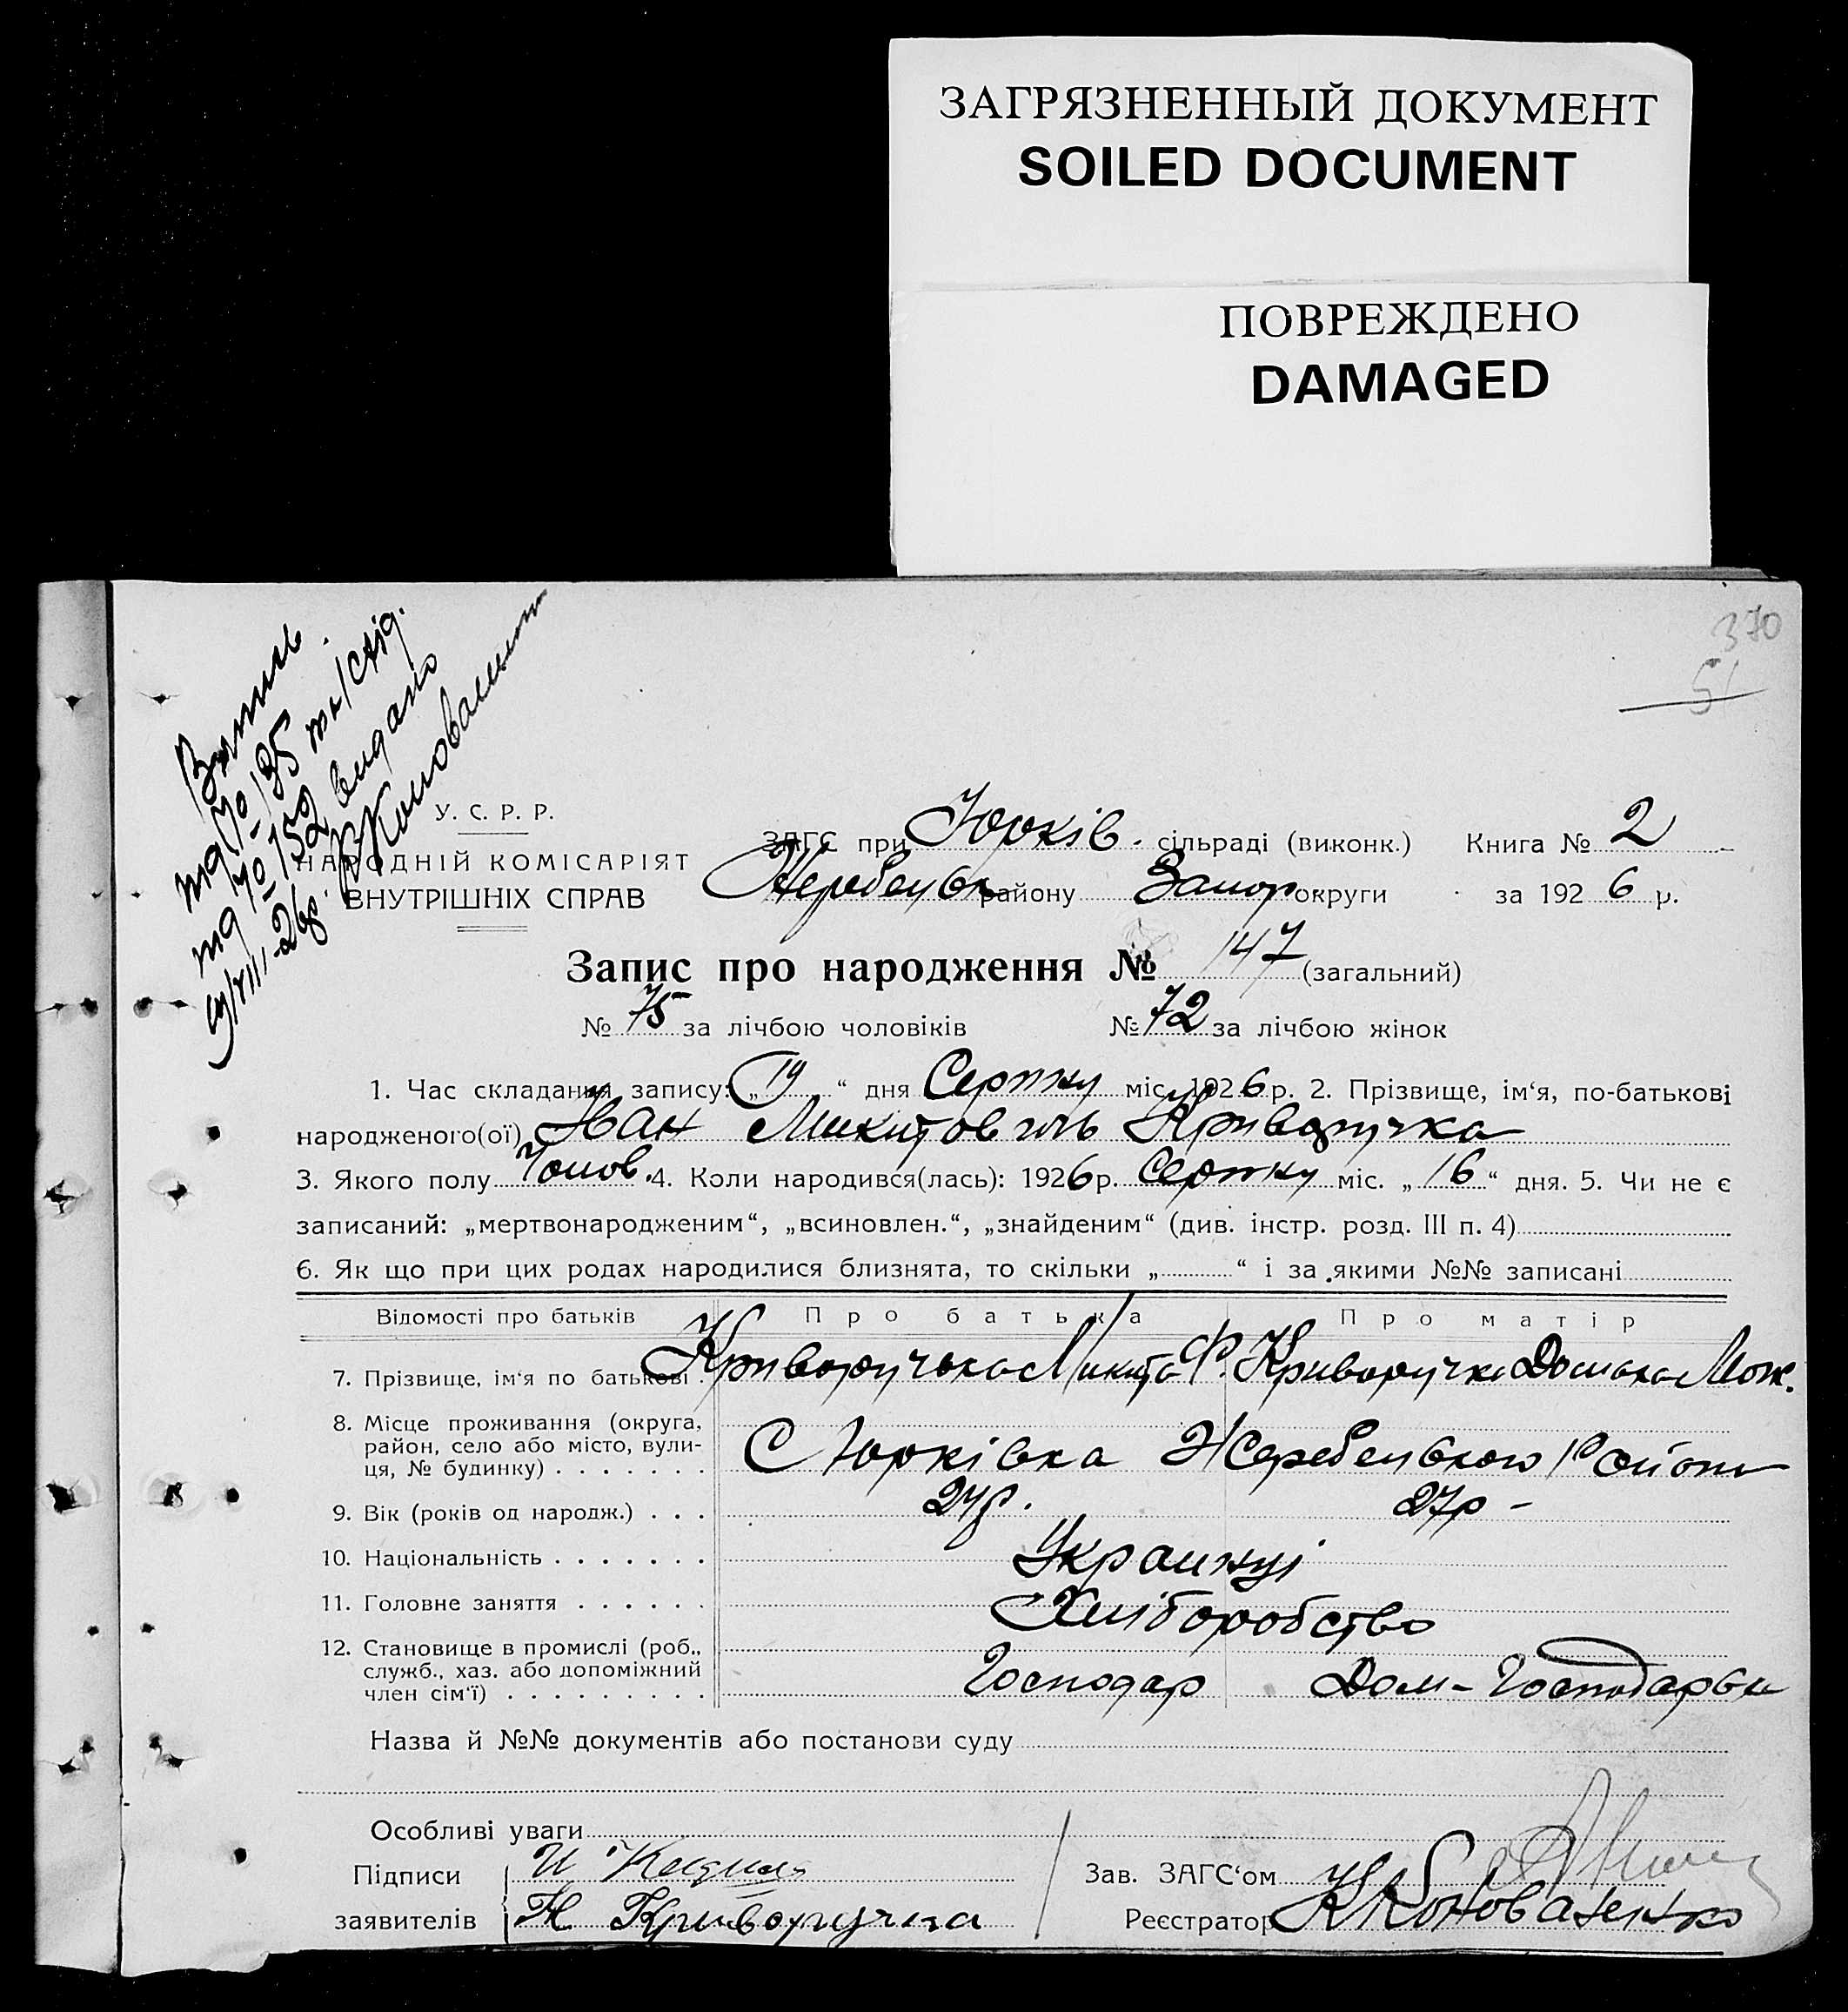 ЗАГРЯЗНЕННЫЙ ДОКУМЕНТ
SOILED DOCUMENT
ПОВРЕЖДЕНО
DAMAGED
370
51
видано
У. С. Р. Р.
НАРОДНІЙ КОМІСАРІЯТ
ВНУТРІШНІХ СПРАВ
ЗАГС при Юрків. сільраді (виконк.) Книга № 2
Жеребецьк району Запор округи за 1926 р.
Запис про народження № 147 (загальний)
№ 75 за лічбою чоловіків № 72 за лічбою жінок
1. Час складання запису: „19“ дня Серпня міс. 1926 р. 2. Прізвище, ім‘я, по-батькові
народженого(ої) Іван Микитович Криворучка
3. Якого полу Чолов. 4. Коли народився(лась): 1926 р. Серпня міс. „16“ дня. 5. Чи не є
записаний: „мертвонародженим“, „всиновлен.“, „знайденим“ (див. інстр. розд. III п. 4)
6. Як що при цих родах народилися близнята, то скільки „ “ і за якими №№ записані
Відомості про батьків Про батька Про матір
7. Прізвище, ім‘я по батькові. Криворучка Микита Ф. Криворучка
8. Місце проживання (округа,
район, село або місто, вули-
ця, № будинку) . . . . . . . С Юрківка Жеребецького Району
9. Вік (років од народж.) . . . 27р -
10. Національність . . . . . . . Украинці
11. Головне заняття . . . . . . Хліборобство
12. Становище в промислі (роб.,
служб., хаз. або допоміжний
член сім‘ї) . . . . . . . . . Господар Дом-Господарьи
Назва й №№ документів або постанови суду
Особливі уваги
Підписи
заявителів Н Криворучка
Зав. ЗАГС‘ом
Реєстратор К Коноваленко